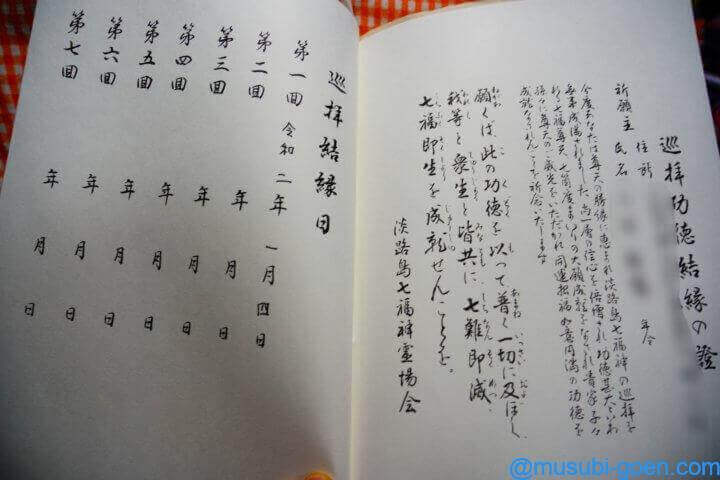 巡拝功徳結縁の證
祈願主 住所
氏名 年令
今度あなたは尊天の勝縁に恵まれ淡路島七福神の巡拝を
無事成満されました。尚一層の信心を倍増され功徳甚大といわ
れる七福尊天七箇度まいりの大願成就をなされ貴家子々
孫々に尊天の御威光をいただかれ開運招福如意円満の功徳を
成就なられんことを祈念いたします
願くば此の功徳を以って普く一切に及ぼし
我等と衆生と皆共に七難即滅
七福即生を成就せんことを。
淡路島七福神霊場会
巡拝結縁日
第一回 令和二年一月四日
第二回 年 月 日
第三回 年 月 日
第四回 年 月 日
第五回 年 月 日
第六回 年 月 日
第七回 年 月 日
@musubi-goen.com